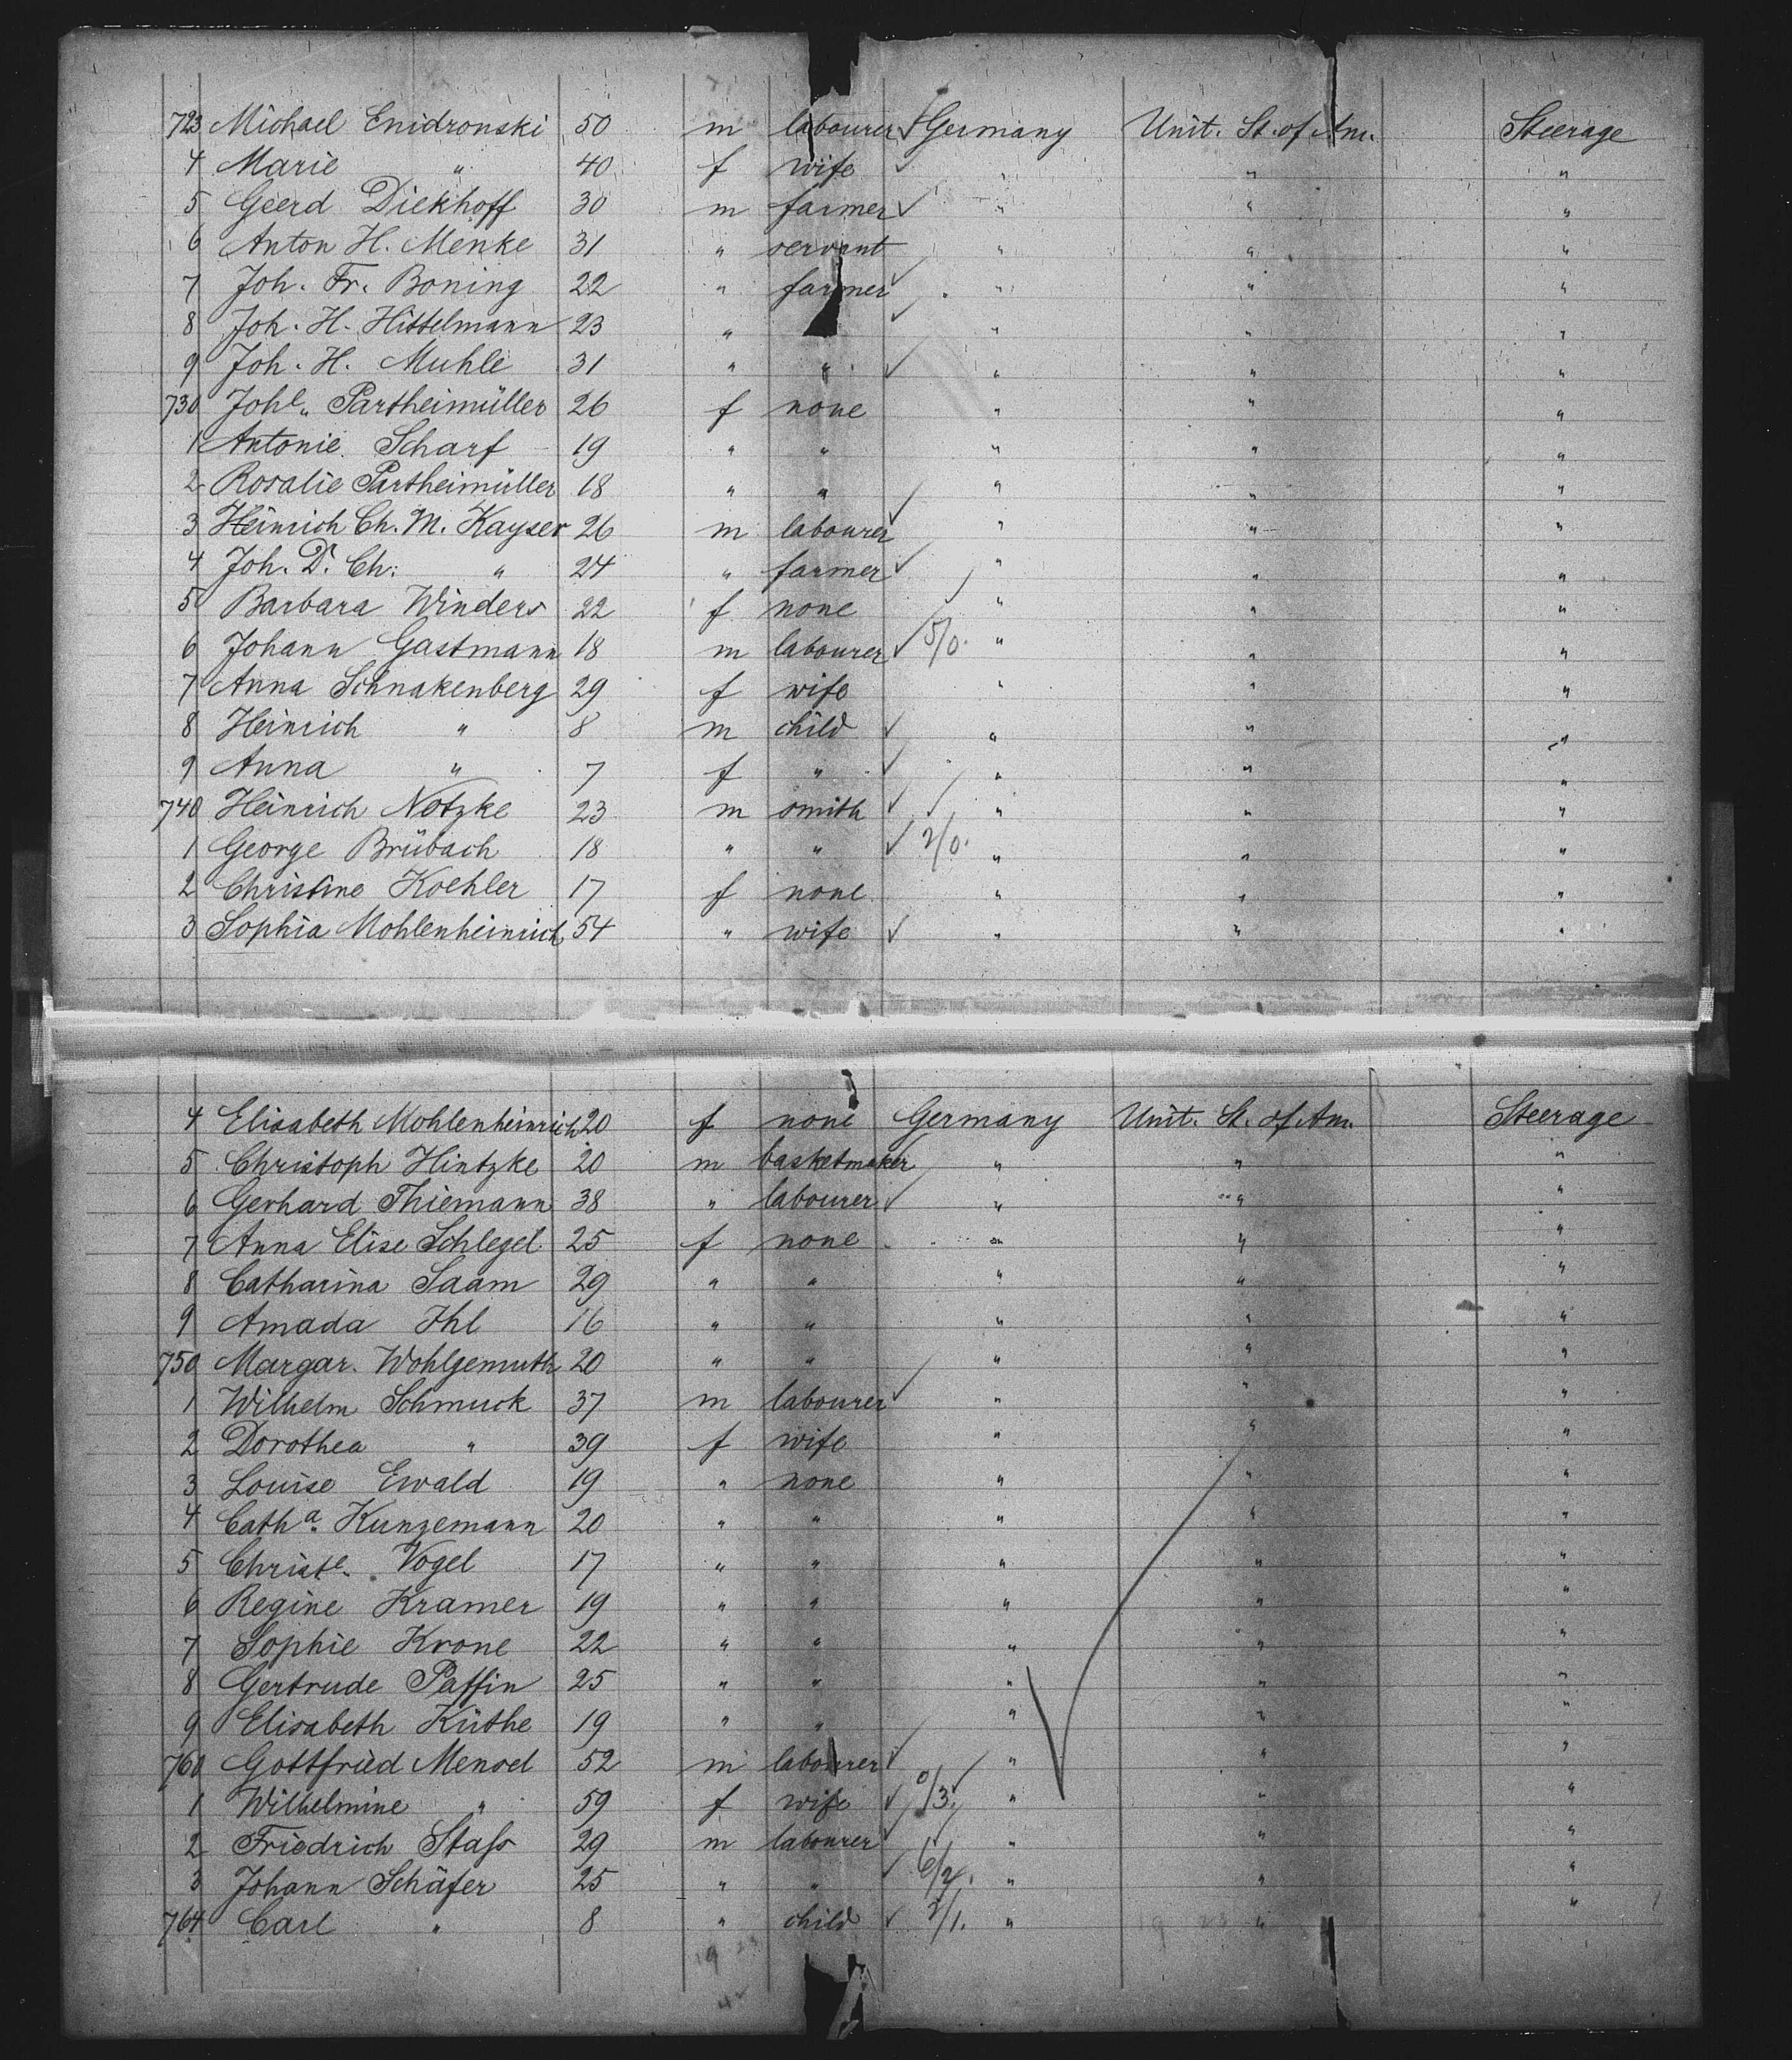 723 Michael Enidronski 50 m labourer Germany Unit. St. of Am. Steerage
4 Marie " 40 f wife " " "
5 Geerd Diekhoff 30 m farmer " " "
6 Anton H. Menke 31 " servant " " "
7 Joh. Fr. Boning 22 " farmer " " "
8 Joh. H. Hittelmann 23 " " " "
9 Joh. H. Muhle 31 " " " " "
730 Johe. Partheimüller 26 f none " " "
1 Antonie Scharf 19 " " " " "
2 Rosalie Partheimüller 18 " " " " "
3 Heinrich Ch. M. Kayser 26 m labourer " " "
4 Joh. D. Ch. " 24 " farmer " " "
5 Barbara Winders 22 f none " " "
6 Johann Gastmann 18 m labourer 5/0. " " "
7 Anna Schnakenberg 29 f wife " " "
8 Heinrich " 8 m child " " "
9 Anna " 7 f " " " "
740 Heinrich Notzke 23 m smith " " "
1 George Brübach 18 " " 2/0. " " "
2 Christine Koehler 17 f none " " "
3 Sophia Mohlenheinrich 54 " wife " " "
4 Elisabeth Mohlenheinrich 20 f none Germany Unit. St. of Am. Steerage
5 Christoph Hintzke 20 m basketmaker " " "
6 Gerhard Thiemann 38 " labourer " " "
7 Anna Elise Schlegel 25 f none " " "
8 Catharina Saam 29 " " " " "
9 Amada Ihl 16 " " " " "
750 Margar. Wohlgemuth 20 " " " " "
1 Wilhelm Schmuck 37 m labourer " " "
2 Dorothea " 39 f wife " " "
3 Louise Ewald 19 " none " " "
4 Catha. Kunzemann 20 " " " " "
5 Christe. Vogel 17 " " " " "
6 Regine Kramer 19 " " " " "
7 Sophie Krone 22 " " " " "
8 Gertrude Paffin 25 " " " " "
9 Elisabeth Küthe 19 " " " " "
760 Gottfried Mensel 52 m labourer " " "
1 Wilhelmine " 59 f wife 0/3. " " "
2 Friedrich Stass 29 m labourer " " "
3 Johann Schäfer 25 " " 6/2. " " "
764 Carl " 8 " child 2/1. " " "